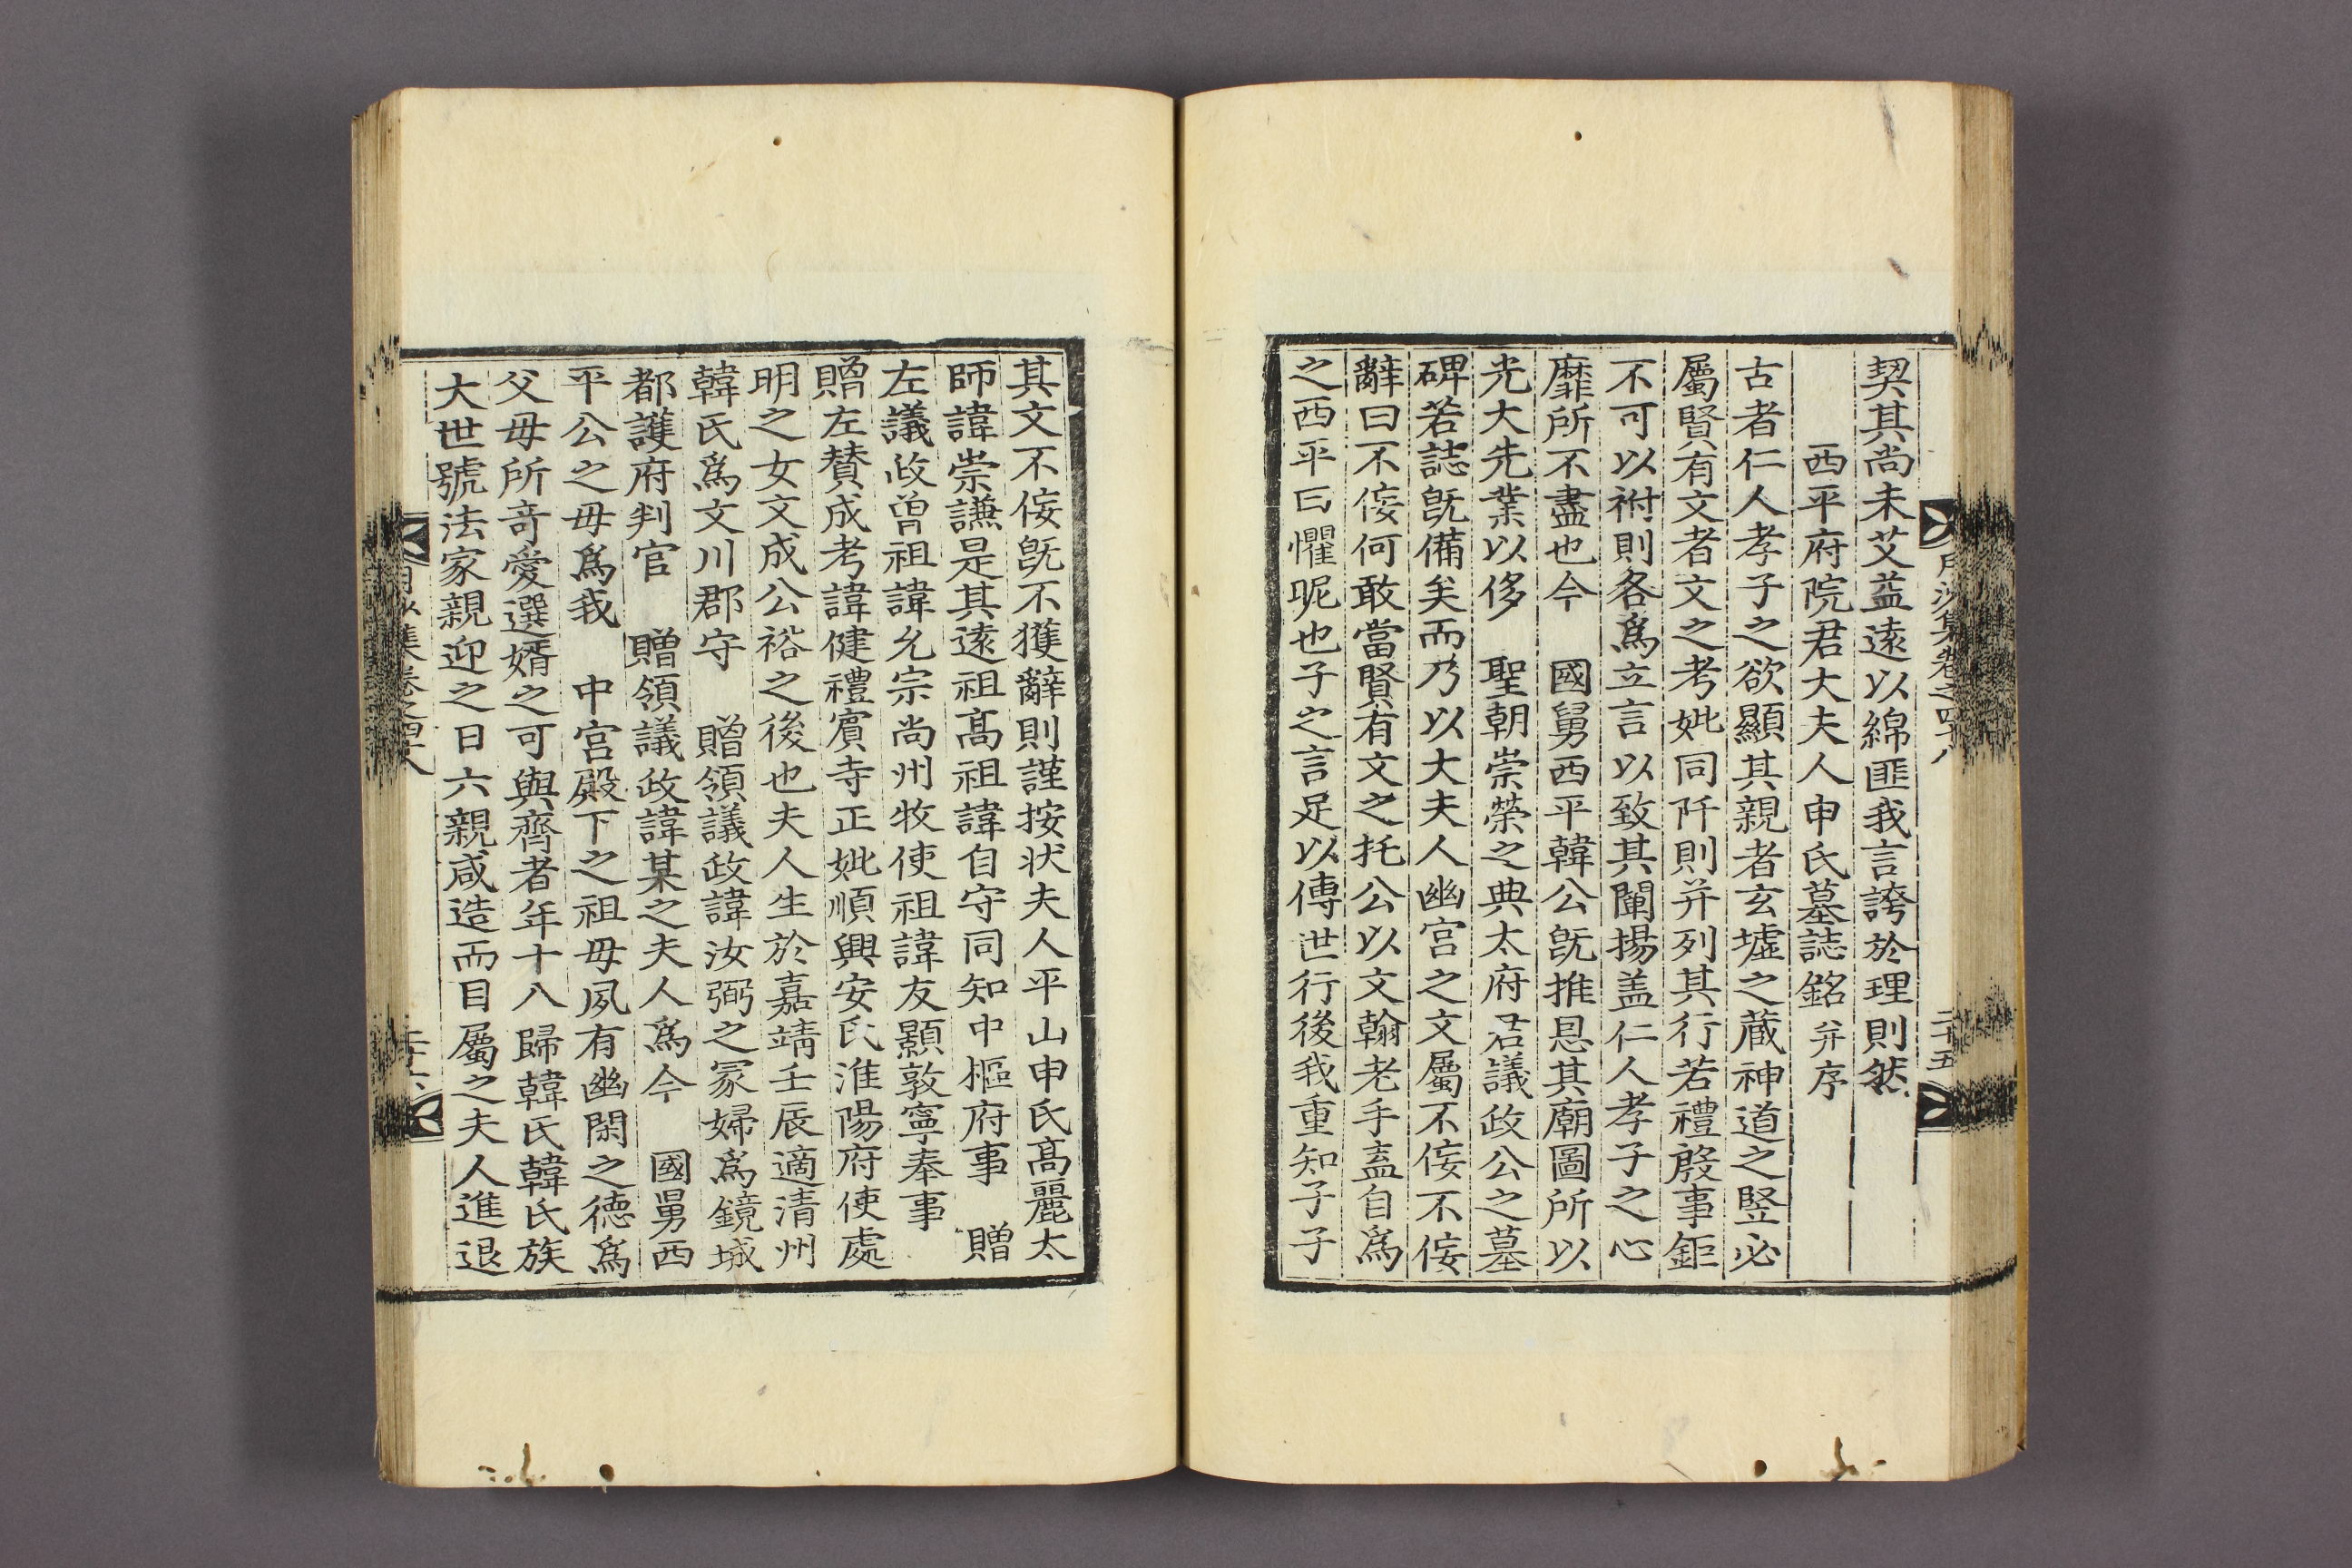 契其尚未艾益遠以綿匪我言誇於理則然
西平府院君大夫人申氏墓誌銘 幷序
古者仁人孝子之欲顯其親者玄墟之藏神道之竪必
屬賢有文者文之考妣同阡則幷列其行若禮殷事鉅
不可以祔則各爲立言以致其闡揚盖仁人孝子之心
靡所不盡也今 國舅西平韓公旣推恩其廟圖所以
光大先業以侈 聖朝崇榮之典太府君議政公之墓
碑若誌旣備矣而乃以大夫人幽宮之文屬不佞不佞
辭曰不佞何敢當賢有文之托公以文翰老手盍自爲
之西平曰懼昵也子之言足以傳世行後我重知子子
月沙集卷之四十八
二十五
其文不佞旣不獲辭則謹按狀夫人平山申氏高麗太
師諱崇謙是其遠祖高祖諱自守同知中樞府事 贈
左議政曾祖諱允宗尚州牧使祖諱友顥敦寧奉事
贈左賛成考諱健禮賓寺正妣順興安氏淮陽府使處
明之女文成公裕之後也夫人生於嘉靖壬辰適清州
韓氏爲文川郡守 贈領議政諱汝弼之冢婦爲鏡城
都護府判官 贈領議政諱某之夫人爲今 國舅西
平公之母爲我 中宮殿下之祖母夙有幽閑之德爲
父母所奇愛選婿之可與齊者年十八歸韓氏韓氏族
大世號法家親迎之日六親咸造而目屬之夫人進退
月沙集卷之四十八